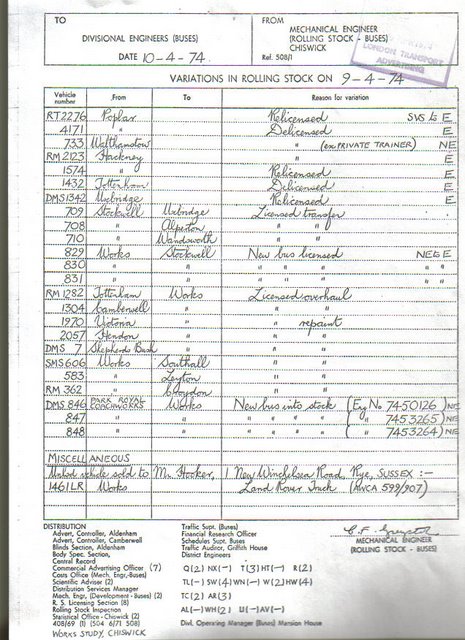 TO
DIVISIONAL ENGINEERS (BUSES)
DATE 10-4-74
FROM
MECHANICAL ENGINEER
(ROLLING STOCK - BUSES)
CHISWICK
Ref. 508/1
LONDON TRANSPORT
ADVERTISING
VARIATIONS IN ROLLING STOCK ON 9-4-74
Vehicle number From To Reason for variation
RT2276 Poplar Relicensed SVS to E
4171 " Delicensed E
733 Walthamstow " (ex PRIVATE TRAINER) NE
RM2123 Hackney " E
1574 " Relicensed E
1432 Tottenham Delicensed E
DMS1342 Uxbridge Relicensed E
709 Stockwell Uxbridge Licensed transfer
708 " Alperton " "
710 " Wandsworth " "
829 Works Stockwell New bus licensed NE to E
830 " " " " " " "
831 " " " " " " "
RM1282 Tottenham Works Licensed overhaul
1304 Camberwell " " "
1970 Victoria " " repaint
2057 Hendon " " "
DMS 7 Shepherds Bush " " "
SMS606 Works Southall " "
583 " Leyton " "
RM 362 " Croydon " "
DMS 846 PARK ROYAL COACHWORKS Works New bus into stock (Eg No 7450126) NE
847 " " " " " " ( " 7453265) NE
848 " " " " " " ( " 7453264) NE
MISCELLANEOUS
Unlicd vehicle sold to Mr. Hooker, 1 New Winchelsea Road, Rye, SUSSEX :-
1461LR Works Land Rover Truck (AWCA 599/907)
DISTRIBUTION
Advert, Controller, Aldenham
Advert, Controller, Camberwell
Blinds Section, Aldenham
Body Spec. Section,
Central Record
Commercial Advertising Officer (7)
Costs Office (Mech. Engr.-Buses)
Scientific Adviser (2)
Distribution Services Manager
Mech. Engr. (Development - Buses) (2)
R. S. Licensing Section (8)
Rolling Stock Inspection
Statistical Office - Chiswick (2)
408/69 (1) 504 6/71 508
WORKS STUDY, CHISWICK
Traffic Supt. (Buses)
Financial Research Officer
Schedules Supt. Buses
Traffic Auditor, Griffith House
District Engineers
Q(2) NX(-) T(3) HT(-) R(2)
TL(-) SW(4) WN(-) W(2) HW(4)
TC(2) AR(3)
AL(-) WH(2) U(-) AV(-)
Divl. Operating Manager (Buses) Mansion House
MECHANICAL ENGINEER
(ROLLING STOCK - BUSES)